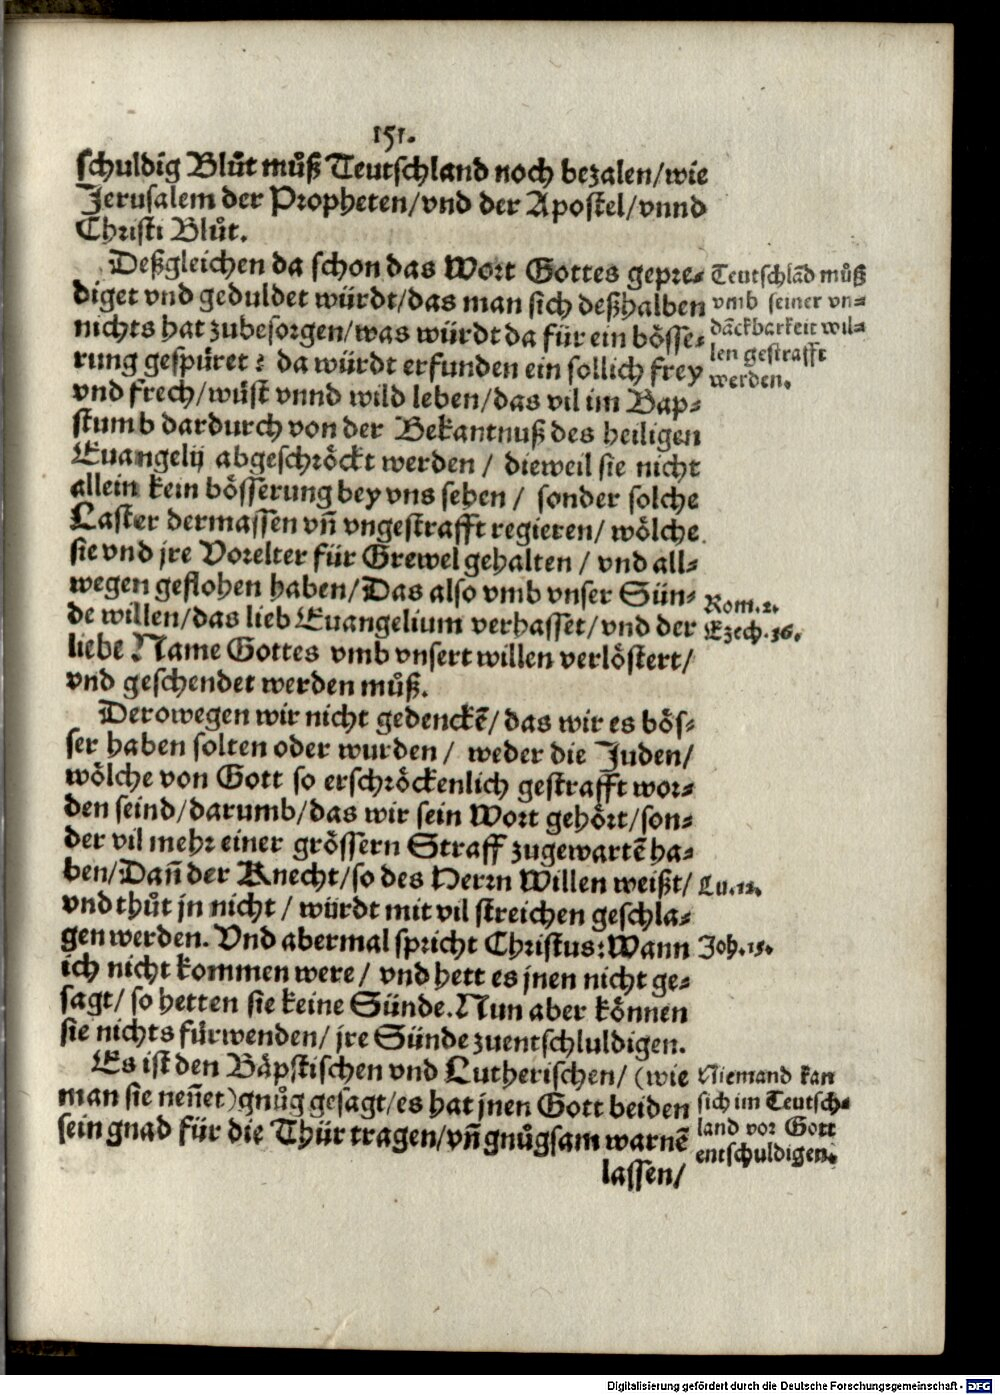 151.
schuldig Blůt můß Teutschland noch bezalen/wie
Jerusalem der Propheten/vnd der Apostel/vnnd
Christi Blůt.
Deßgleichen da schon das Wort Gottes gepre⸗
diget vnd geduldet würdt/das man sich deßhalben
nichts hat zubesorgen/was würdt da für ein bösse⸗
rung gespüret? da würdt erfunden ein sollich frey
vnd frech/wüst vnnd wild leben/das vil im Bap⸗
stumb dardurch von der Bekantnuß des heiligen
Euangelij abgeschröckt werden / dieweil sie nicht
allein kein bösserung bey vns sehen / sonder solche
Laster dermassen vñ vngestrafft regieren/ wölche
sie vnd jre Vorelter für Grewel gehalten / vnd all⸗
wegen geflohen haben/Das also vmb vnser Sün⸗
de willen/das lieb Euangelium verhasset/vnd der
liebe Name Gottes vmb vnsert willen verlöstert/
vnd geschendet werden můß.
Teutschlād můß
vmb seiner vn⸗
dāckbarkeit wil⸗
len gestrafft
werden.
Rom.2.
Ezech.36.
Derowegen wir nicht gedenckē/das wir es bös⸗
ser haben solten oder wurden / weder die Juden/
wölche von Gott so erschröckenlich gestrafft wor⸗
den seind/darumb/das wir sein Wort gehört/son⸗
der vil mehr einer grössern Straff zugewartē ha⸗
ben/Dañ der Knecht/so des Herrn Willen weißt/
vnd thůt jn nicht / würdt mit vil streichen geschla⸗
gen werden. Vnd abermal spricht Christus: Wann
ich nicht kommen were / vnd hett es jnen nicht ge⸗
sagt/ so hetten sie keine Sünde. Nun aber können
sie nichts fürwenden/ jre Sünde zuentschluldigen.
Lu.12.
Joh.15.
Es ist den Bäpstischen vnd Lutherischen/ (wie
man sie neñet)gnůg gesagt/es hat jnen Gott beiden
sein gnad für die Thür tragen/vñ gnůgsam warnē
lassen/
Niemand kan
sich im Teutsch⸗
land vor Gott
entschuldigen.
Digitalisierung gefördert durch die Deutsche Forschungsgemeinschaft - DFG